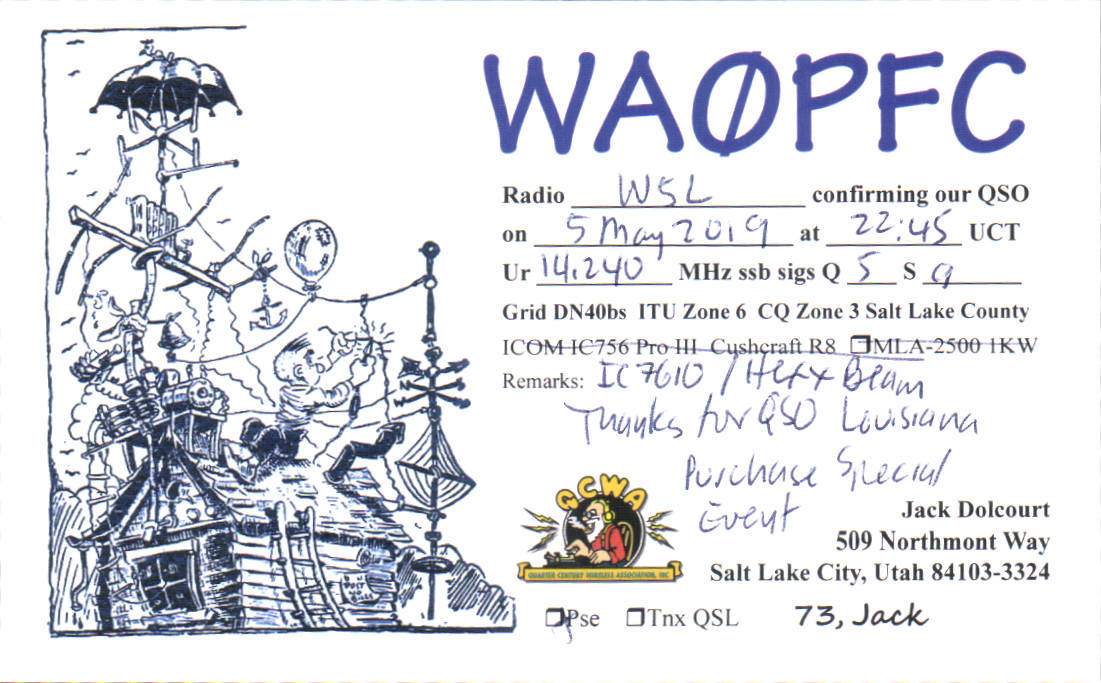 WAØPFC
Radio W5L confirming our QSO
on 5 May 2019 at 22:45 UCT
Ur 14.240 MHz ssb sigs Q 5 S 9
Grid DN40bs ITU Zone 6 CQ Zone 3 Salt Lake County
ICOM IC756 Pro III Cushcraft R8 ❐MLA-2500 1KW
Remarks: IC7610 / Hexx Beam
Thanks for QSO Louisiana
Purchase Special
Event
GCWA
QUARTER CENTURY WIRELESS ASSOCIATION, INC
Jack Dolcourt
509 Northmont Way
Salt Lake City, Utah 84103-3324
❐Pse ❐Tnx QSL 73, Jack